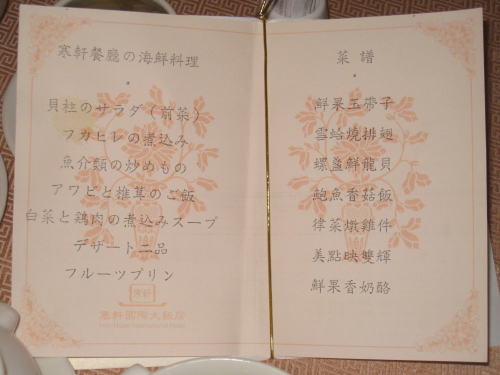 寒軒餐廳の海鮮料理
貝柱のサラダ(前菜)
フカヒレの煮込み
魚介類の炒めもの
アワビと椎茸のご飯
白菜と鶏肉の煮込みスープ
デザート二品
フルーツプリン
寒軒
寒軒國際大飯店
菜譜
鮮果玉帶子
雪蛤燒排翅
螺盞鮮龍貝
鮑魚香菇飯
律菜燉雞件
美點映雙輝
鮮果香奶酪